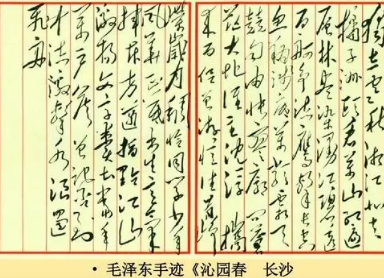 独立寒秋湘江北去
橘子洲头看万山红遍
层林尽染漫江碧透
百舸争流鹰击长空
鱼翔浅底万类霜天
竞自由怅寥廓问
苍茫大地谁主沉浮携
来百侣曾游忆往昔峥
嵘岁月稠恰同学少年
风华正茂书生意气
挥斥方遒指点江山
激扬文字粪土当年
万户侯曾记否到
中流击水浪遏
飞舟
• 毛泽东手迹《沁园春 长沙